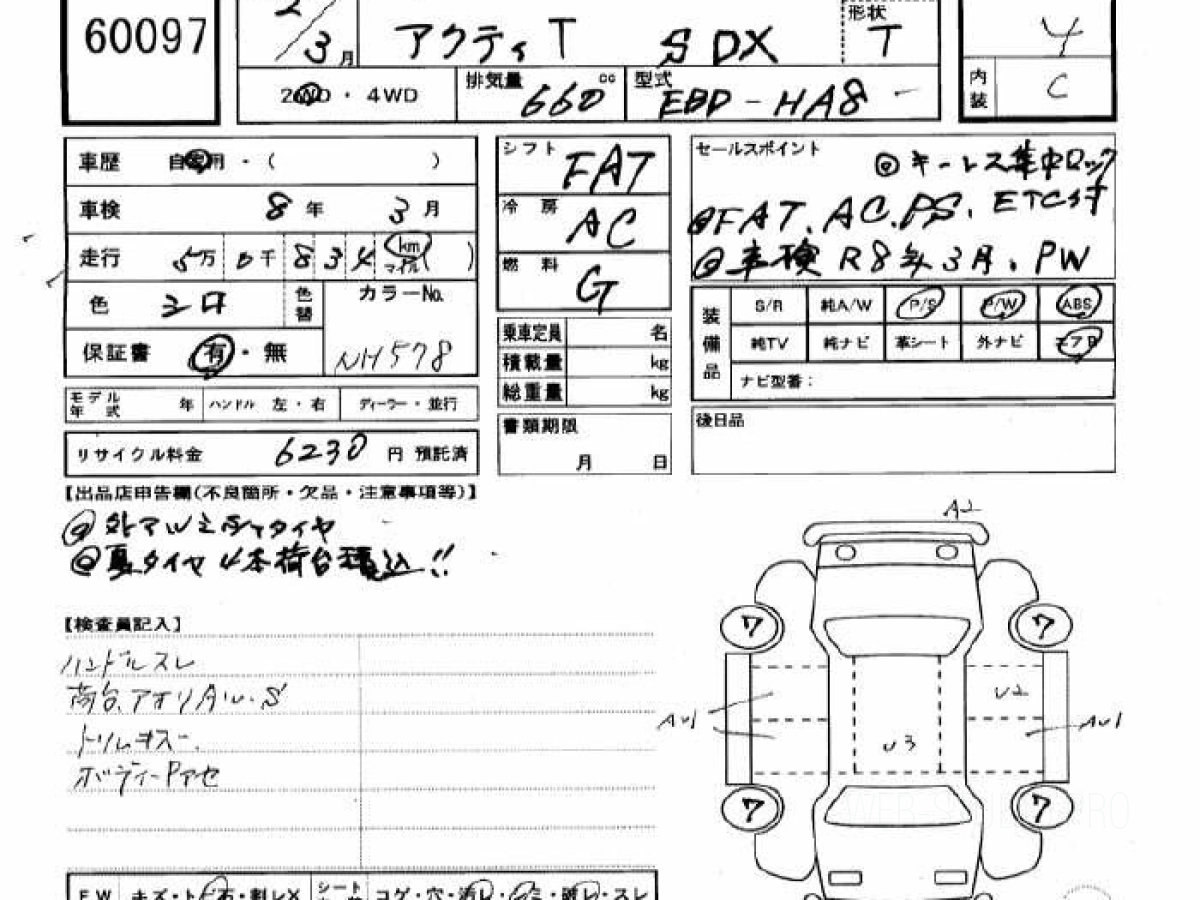 60097
2/3月
アクティT SDX
形状 T
4
2WD・4WD
排気量 660 cc
型式 EBD-HA8
内装 C
車歴 自家用・( )
車検 8年 3月
走行 5万0千834 km マイル( )
色 シロ 色替
カラーNo. NH578
保証書 有・無
モデル年式 年 ハンドル 左・右 ディーラー・並行
リサイクル料金 6230 円 預託済
シフト FAT
冷房 AC
燃料 G
乗車定員 名
積載量 kg
総重量 kg
書類期限 月 日
セールスポイント
◎キーレス集中ロック
◎FAT.AC.PS.ETC付
◎車検R8年3月.PW
装備品
S/R 純A/W P/S P/W ABS
純TV 純ナビ 革シート 外ナビ エアB
ナビ型番:
後日品
【出品店申告欄(不良箇所・欠品・注意事項等)】
◎外アルミ
◎夏タイヤ4本荷台積込!!
【検査員記入】
ハンドルスレ
荷台.アオリ
トリムキズ
ボディー
A2
7
7
AU1
U2
U3
AU1
7
7
FW キズ・トビ石・割レX シート コゲ・穴・汚レ・シミ・破レ・スレ